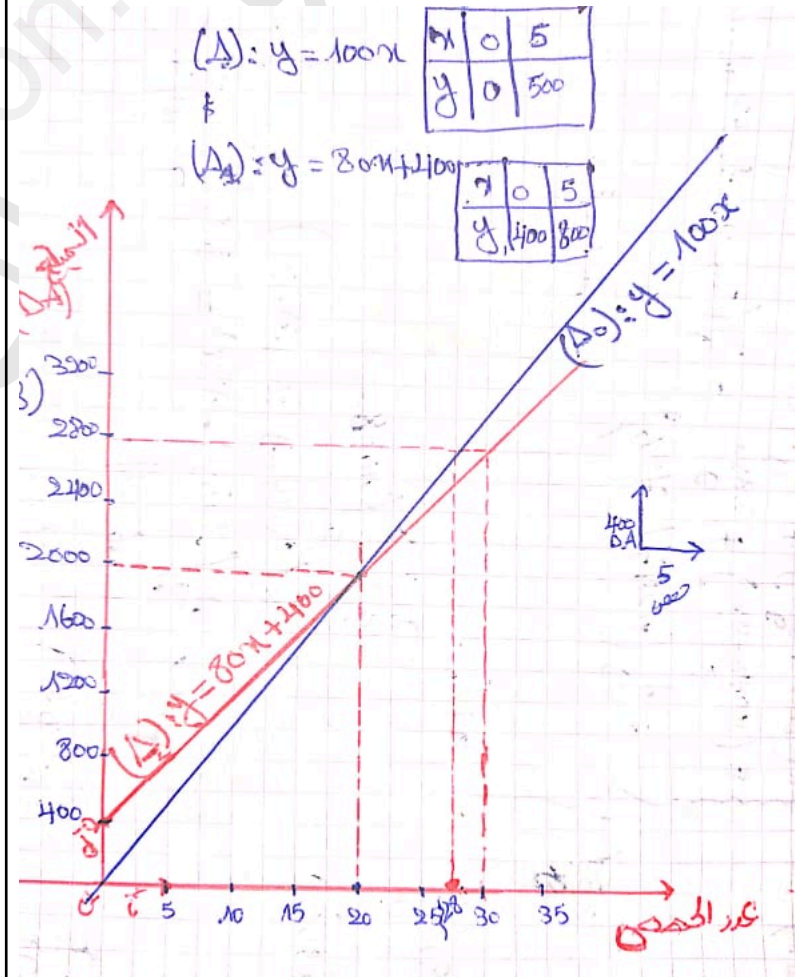 (Δ): y = 100x
x 0 5
y 0 500
(Δ₁): y = 80x+400
x 0 5
y 400 800
(Δ₀): y = 100x
3200
2800
2400
2000
1600
1200
800
400
(Δ₁): y = 80x+400
400
DA
5
حصص
0 i 5 10 15 20 25 28 30 35
عدد الحصص